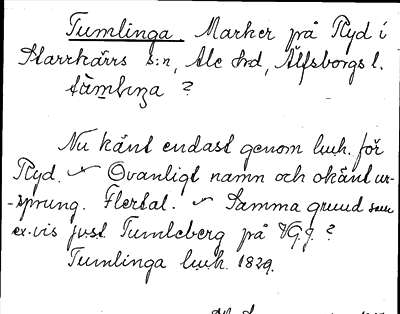 Tumlinga Marker på Ryd i
Starrkärrs s:n, Ale hrd, Älfsborgs l.
?
Nu känt endast genom luh. för
Ryd. — Ovanligt namn och okänt ur-
-sprung. Flertal. — Samma grund som
ex.vis just Tumleberg på Vg.g. ?
Tumlinga luh. 1829.